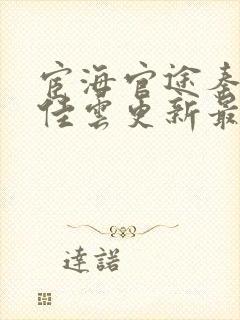 宦海官途秦
佳雲更新最
達諾